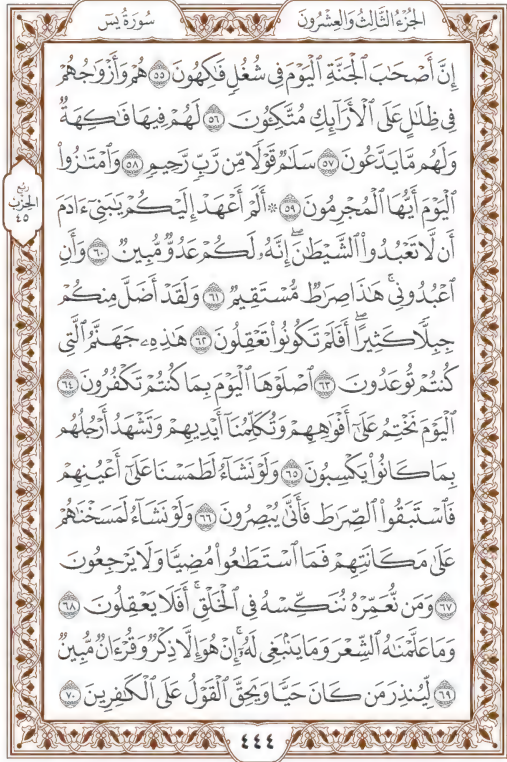 الجُزْءُ الثَّالِثُ وَالعِشْرُونَ
سُورَةُ يسٓ
إِنَّ أَصْحَٰبَ ٱلْجَنَّةِ ٱلْيَوْمَ فِى شُغُلٍ فَٰكِهُونَ ٥٥ هُمْ وَأَزْوَٰجُهُمْ
فِى ظِلَٰلٍ عَلَى ٱلْأَرَآئِكِ مُتَّكِـُٔونَ ٥٦ لَهُمْ فِيهَا فَٰكِهَةٌ
وَلَهُم مَّا يَدَّعُونَ ٥٧ سَلَٰمٌ قَوْلًا مِّن رَّبٍّ رَّحِيمٍ ٥٨ وَٱمْتَٰزُوا۟
ٱلْيَوْمَ أَيُّهَا ٱلْمُجْرِمُونَ ٥٩ ۞ أَلَمْ أَعْهَدْ إِلَيْكُمْ يَٰبَنِىٓ ءَادَمَ
أَن لَّا تَعْبُدُوا۟ ٱلشَّيْطَٰنَ ۖ إِنَّهُۥ لَكُمْ عَدُوٌّ مُّبِينٌ ٦٠ وَأَنِ
ٱعْبُدُونِى ۚ هَٰذَا صِرَٰطٌ مُّسْتَقِيمٌ ٦١ وَلَقَدْ أَضَلَّ مِنكُمْ
جِبِلًّا كَثِيرًا ۖ أَفَلَمْ تَكُونُوا۟ تَعْقِلُونَ ٦٢ هَٰذِهِۦ جَهَنَّمُ ٱلَّتِى
كُنتُمْ تُوعَدُونَ ٦٣ ٱصْلَوْهَا ٱلْيَوْمَ بِمَا كُنتُمْ تَكْفُرُونَ ٦٤
ٱلْيَوْمَ نَخْتِمُ عَلَىٰٓ أَفْوَٰهِهِمْ وَتُكَلِّمُنَآ أَيْدِيهِمْ وَتَشْهَدُ أَرْجُلُهُم
بِمَا كَانُوا۟ يَكْسِبُونَ ٦٥ وَلَوْ نَشَآءُ لَطَمَسْنَا عَلَىٰٓ أَعْيُنِهِمْ
فَٱسْتَبَقُوا۟ ٱلصِّرَٰطَ فَأَنَّىٰ يُبْصِرُونَ ٦٦ وَلَوْ نَشَآءُ لَمَسَخْنَٰهُمْ
عَلَىٰ مَكَانَتِهِمْ فَمَا ٱسْتَطَٰعُوا۟ مُضِيًّا وَلَا يَرْجِعُونَ
٦٧ وَمَن نُّعَمِّرْهُ نُنَكِّسْهُ فِى ٱلْخَلْقِ ۖ أَفَلَا يَعْقِلُونَ ٦٨
وَمَا عَلَّمْنَٰهُ ٱلشِّعْرَ وَمَا يَنۢبَغِى لَهُۥٓ ۚ إِنْ هُوَ إِلَّا ذِكْرٌ وَقُرْءَانٌ مُّبِينٌ
٦٩ لِّيُنذِرَ مَن كَانَ حَيًّا وَيَحِقَّ ٱلْقَوْلُ عَلَى ٱلْكَٰفِرِينَ ٧٠
رُبْع
الحِزْب
٤٥
٤٤٤